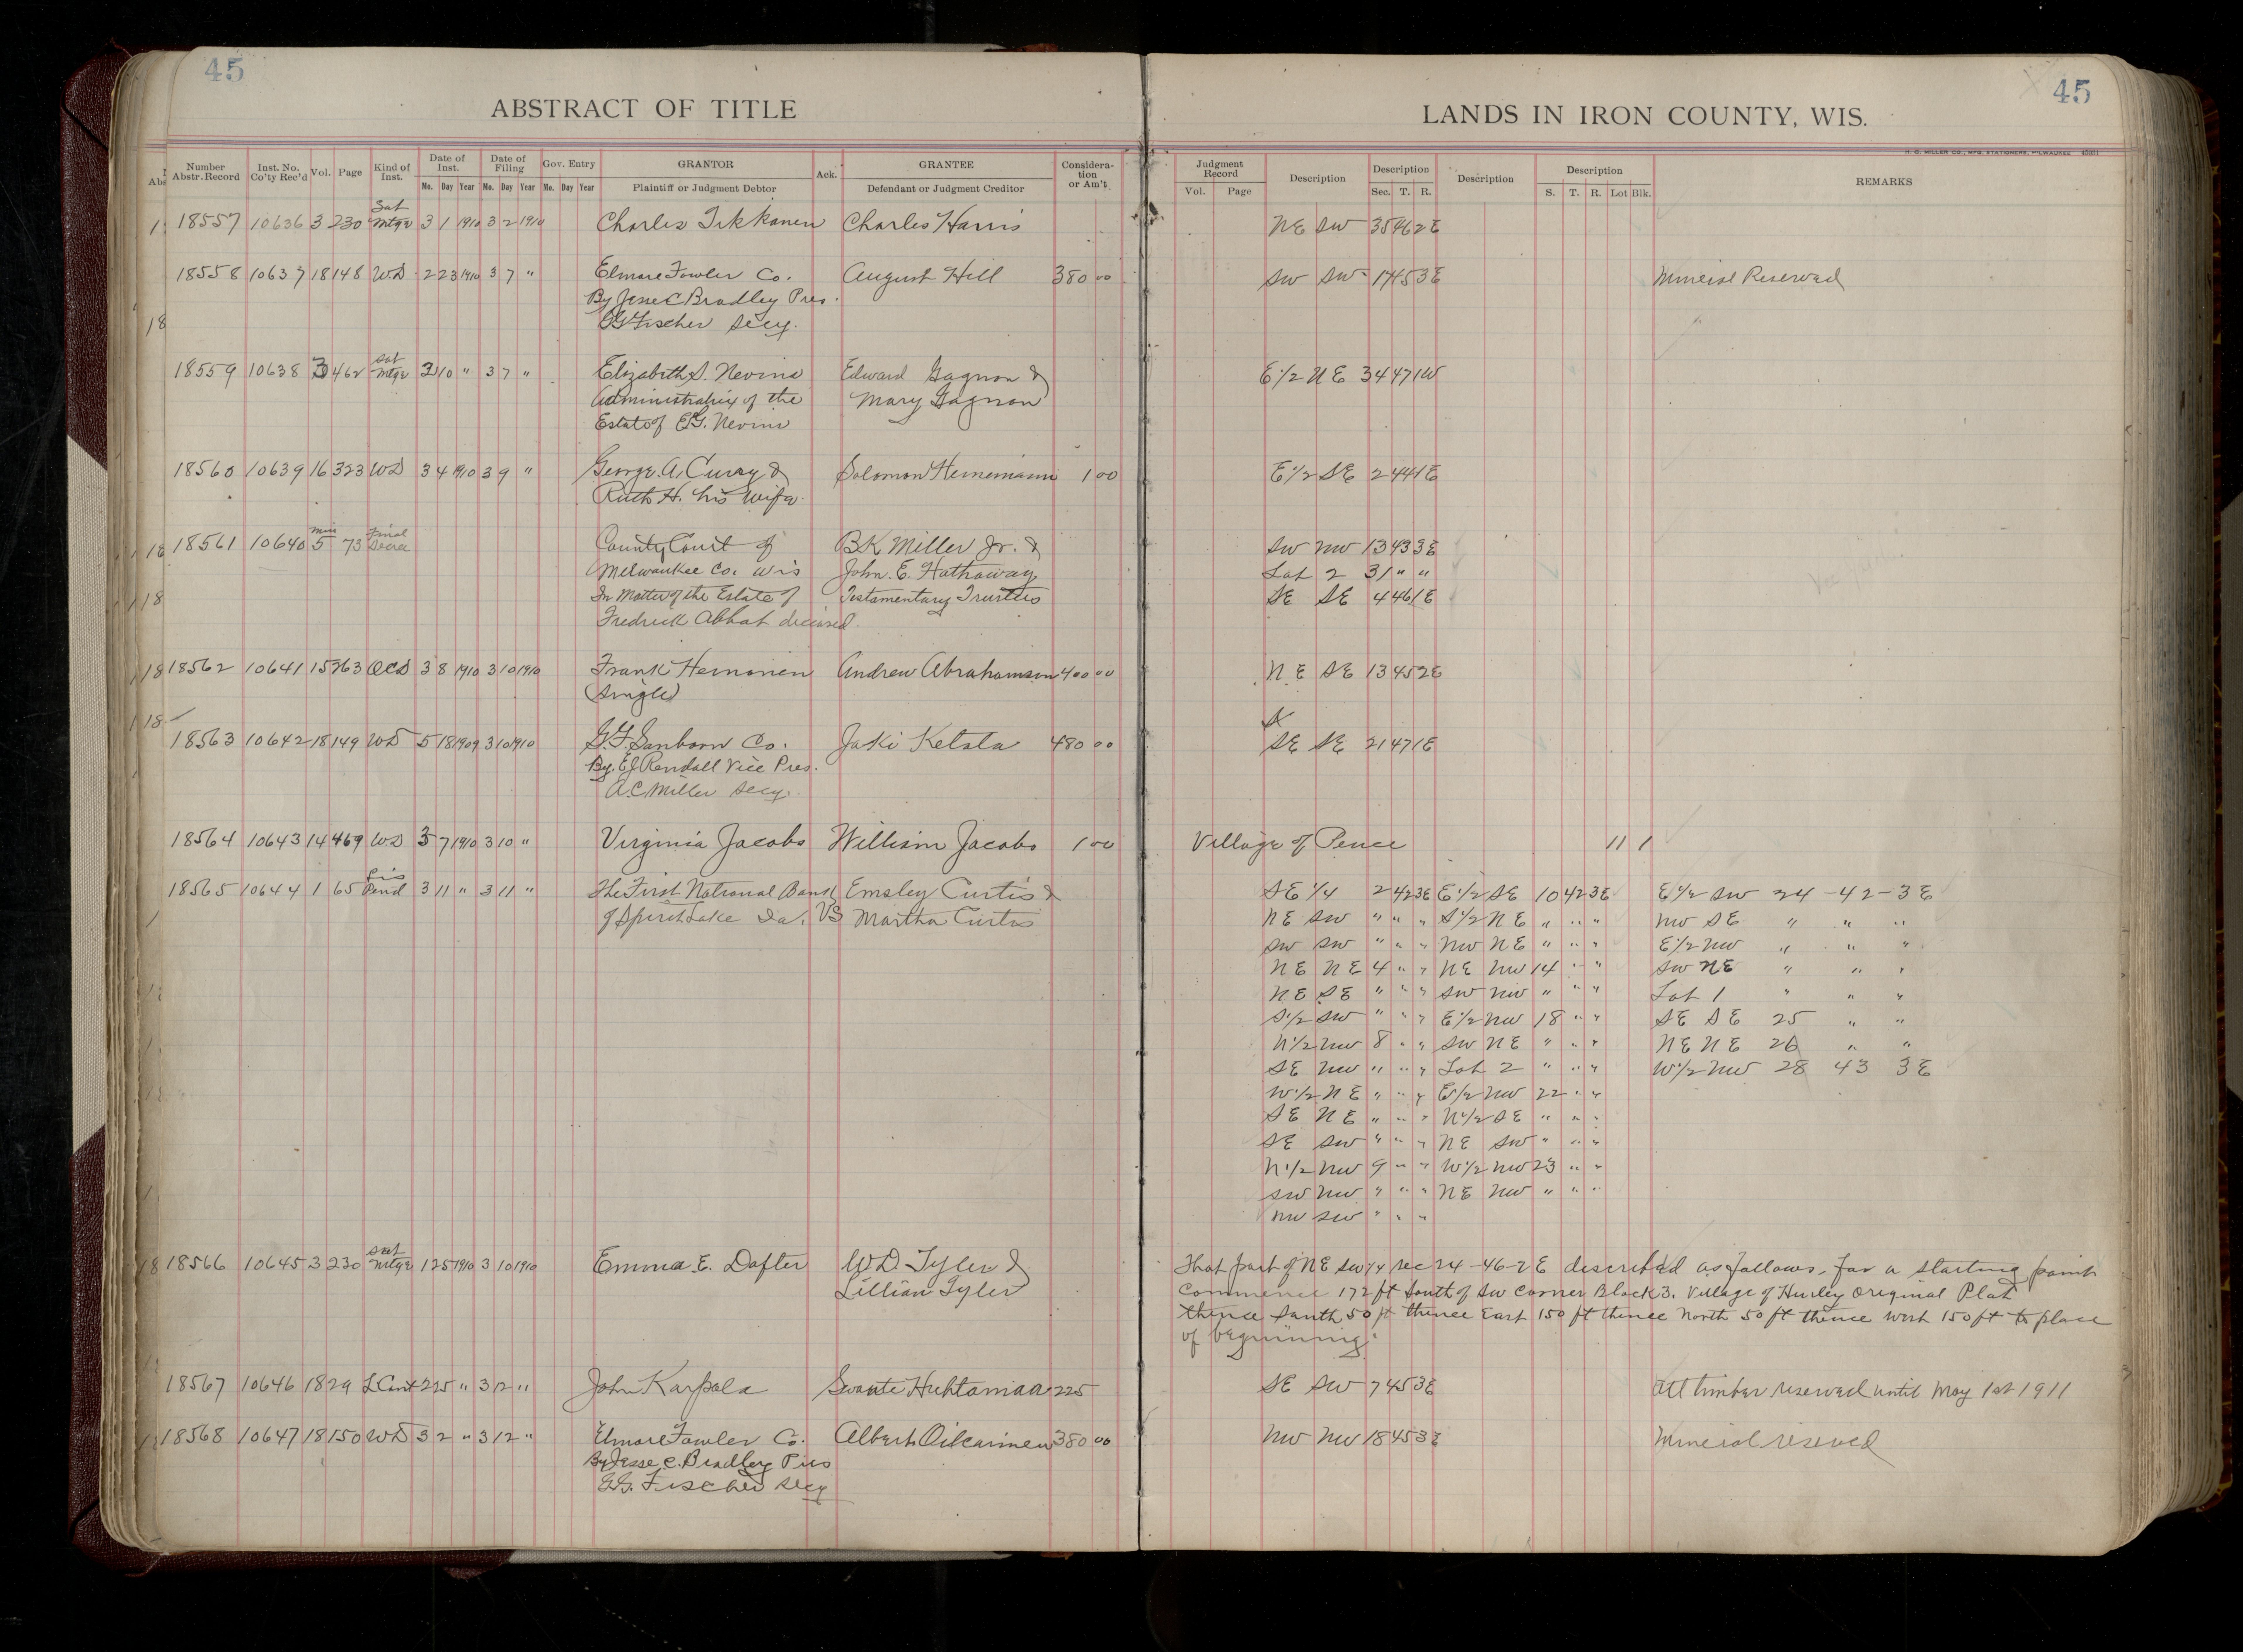 45
45
ABSTRACT OF TITLE
LANDS IN IRON COUNTY, WIS.
H. C. MILLER CO., MFG. STATIONERS, MILWAUKEE
Number Abstr. Record Inst. No. Co'ty Rec'd Vol. Page Kind of Inst. Date of Inst. Mo. Day Year Date of Filing Mo. Day Year Gov. Entry Mo. Day Year GRANTOR Plaintiff or Judgment Debtor Ack. GRANTEE Defendant or Judgment Creditor Considera-tion or Am't.
Judgment Record Vol. Page Description Description Sec. T. R. Description Description S. T. R. Lot Blk. REMARKS
18557 10636 3 230 Sat Mtge 3 1 1910 3 2 1910 Charles Tikkanen Charles Harris NE SW 35 46 2E
18558 10637 18 148 WD 2 23 1910 3 7 " Elmore Fowler Co. August Hill 380 00 SW SW 17 45 3E Mineral Reserved
By Jesse C Bradley Pres.
GG Fischer Secy.
18559 10638 3 462 Sat Mtge 3 10 " 3 7 " Elizabeth S. Nevins Edward Gagnon & E 1/2 NE 34 47 1W
Administratrix of the Mary Gagnon
Estate of E.G. Nevins
18560 10639 16 323 WD 3 4 1910 3 9 " George A. Curry & Solomon Heinemann 1 00 E 1/2 SE 2 44 1E
Ruth H. his wife
18561 10640 Mis 5 73 Final Decree County Court of B.K. Miller Jr. & SW NW 13 43 3E
Milwaukee Co. Wis John. E. Hathaway Lot 2 31 " "
In Matter of the Estate of Testamentary Trustees SE SE 4 46 1E
Fredrick Abbot deceased.
18562 10641 15 263 QCD 3 8 1910 3 10 1910 Frank Hemonen Andrew Abrahamson 400 00 NE SE 13 45 2E
(single)
18563 10642 18 149 WD 5 18 1909 3 10 1910 S.F. Sanborn Co. Jaki Ketola 480 00 SE SE 21 47 1E
By. EJ Rendall Vice Pres.
A.C Miller Secy.
18564 10643 14 469 WD 3 7 1910 3 10 " Virginia Jacobs William Jacobs 1 00 Village of Pence 11 1
18565 10644 1 65 Lis Pend 3 11 " 3 11 " The First National Bank Emsley Curtis & SE 1/4 2 42 3E E 1/2 SE 10 42 3E E 1/2 SW 24 - 42 - 3E
of Spirit Lake Ia. VS Martha Curtis NE SW " " " S 1/2 NE " " " NW SE " " "
SW SW " " " NW NE " " " E 1/2 NW " " "
NE NE 4 " " NE NW 14 " " SW NE " " "
NE SE " " " SW NW " " " Lot 1 " " "
S 1/2 SW " " " E 1/2 NW 18 " " SE SE 25 " "
N 1/2 NW 8 " " SW NE " " " NE NE 26 " "
SE NW " " " Lot 2 " " " W 1/2 NW 28 43 3E
W 1/2 NE " " " E 1/2 NW 22 " "
SE NE " " " N 1/2 SE " " "
SE SW " " " NE SW " " "
N 1/2 NW 9 " " W 1/2 NW 23 " "
SW NW " " " NE NW " " "
NW SW " " "
18566 10645 3 230 Sat Mtge 1 25 1910 3 10 1910 Emma E. Dafter W D Tyler & That part of NE SW 1/4 sec 24 - 46 - 2 E described as follows, for a starting point
Lillian Tyler Commence 172 ft South of SW Corner Block 3. Village of Hurley Original Plat
thence South 50 ft thence East 150 ft thence North 50 ft thence West 150 ft to place
of beginning.
18567 10646 18 29 L Cont 2 25 " 3 12 " John Karpala Swante Huhtamaa 225 SE SW 7 45 3E All timber reserved until May 1st 1911
18568 10647 18 150 WD 3 2 " 3 12 " Elmore Fowler Co. Albert Oikarinen 380 00 NW NW 18 45 3E Mineral reserved
By Jesse C. Bradley Pres
G.G. Fischer Secy